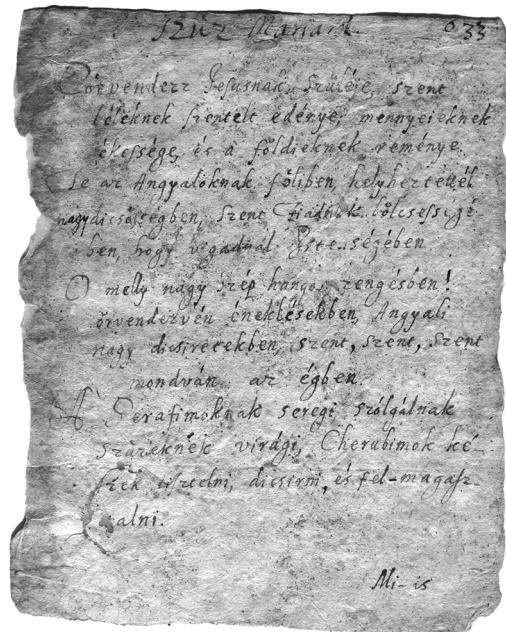 Szűz Mariarol. 033
Örvendezz Jesusnak szüléje, szent
léléknek szentelt edénye, mennyeieknek
ékessége, és a földieknek reménye.
Te az Angyaloknak föliben, helyheztettél
nagy dicsösségben, szent Fiadnak bölcsességé
ben, hogy vigadnál Iste ségében
O melly nagy szép hangos zengésben!
örvendezvén éneklésekben, Angyali
nagy dicsiretekben, szent, szent, szent
mondván az égben.
A Serafimoknak seregi szolgálnak
szüzeknek virági, Cherubimok ké-
szek tisztelni, dicsirni, és fel-magasz-
talni.
Mi-is